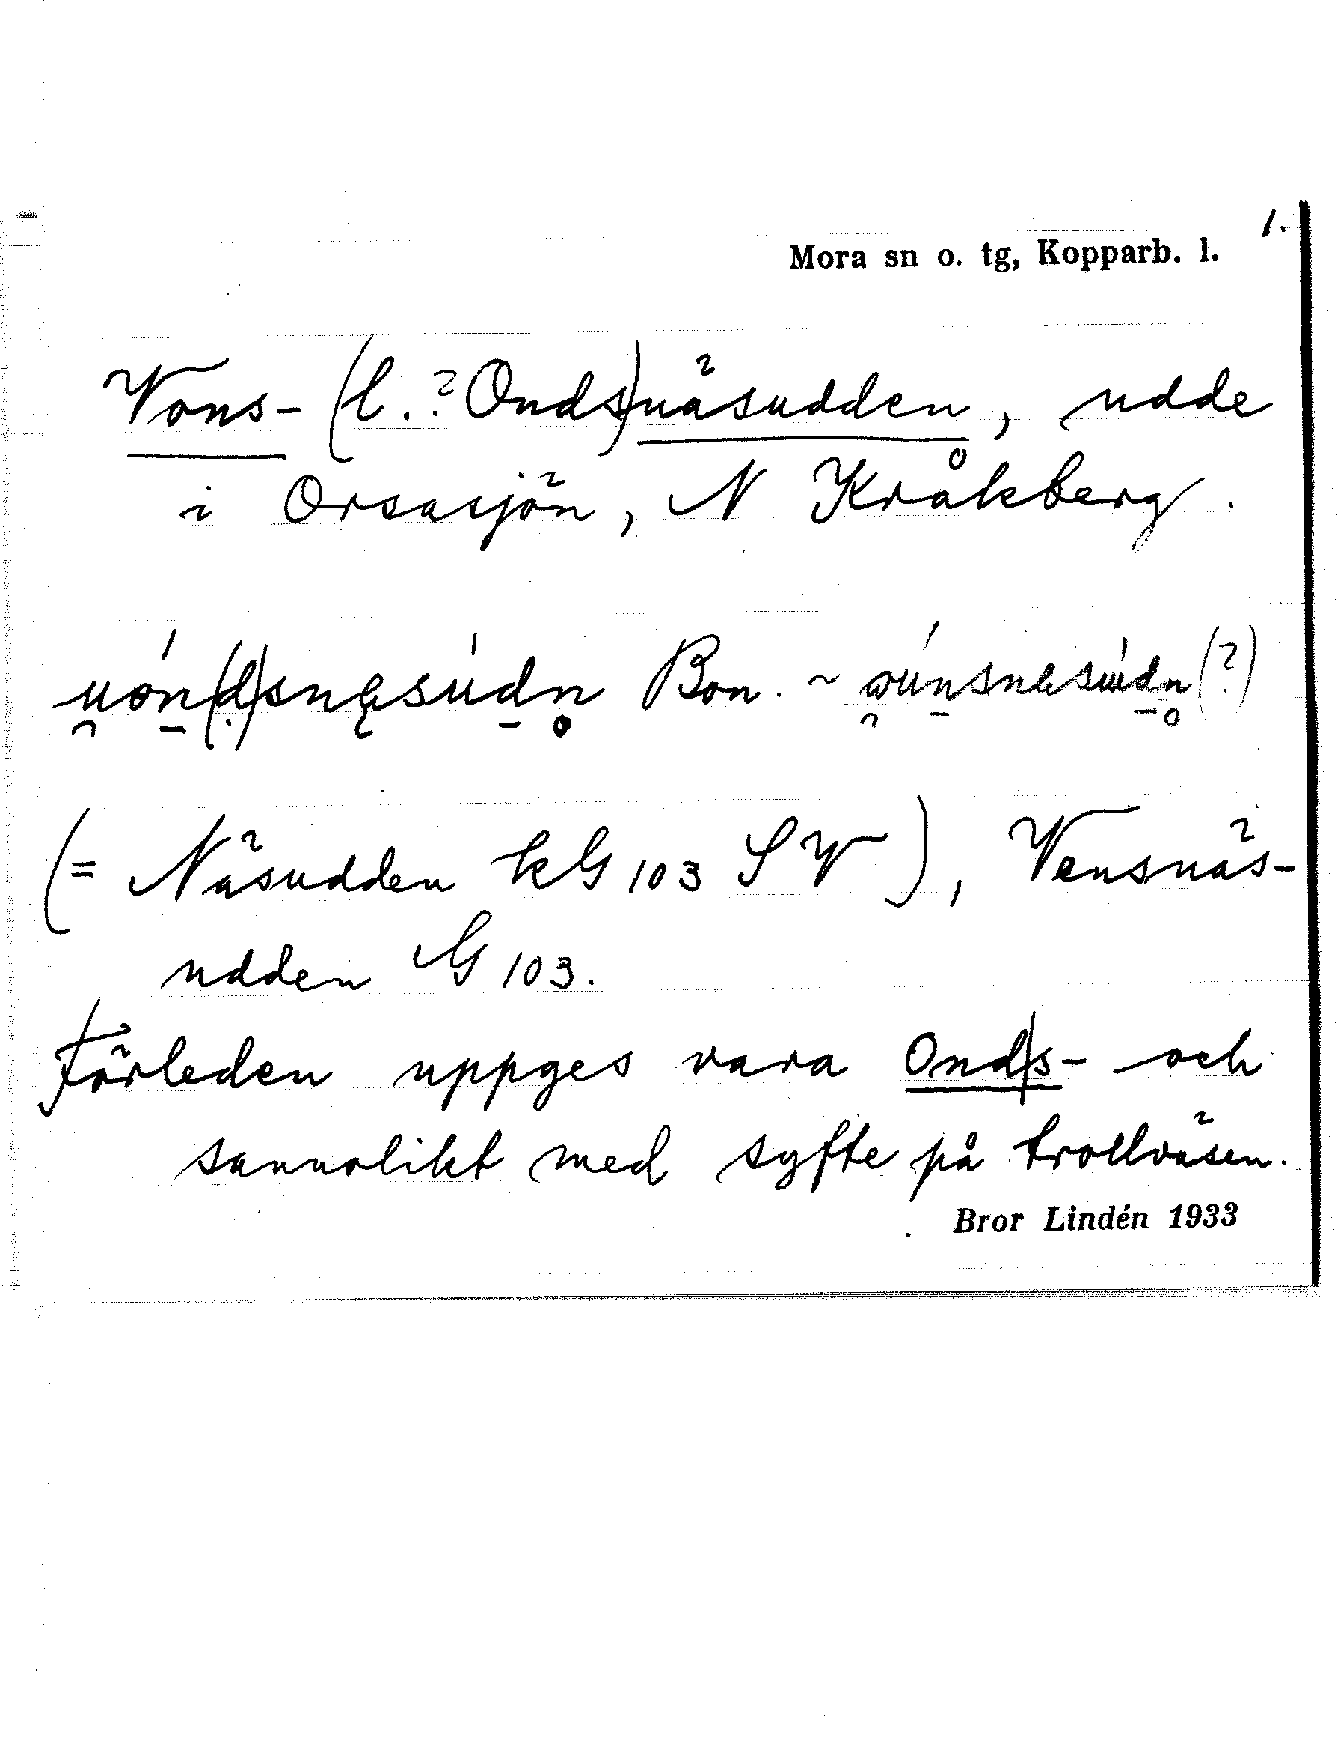 1.
Mora sn o. tg, Kopparb. l.
Vons- (l.? Onds)näsudden, udde
i Orsasjön, N Kråkberg.
Bon. ~ (?)
(= Näsudden kG 103 SV), Vensnäs-
udden G 103.
Förleden uppges vara Ond/s- och
sannolikt med syfte på trollväsen.
Bror Lindén 1933